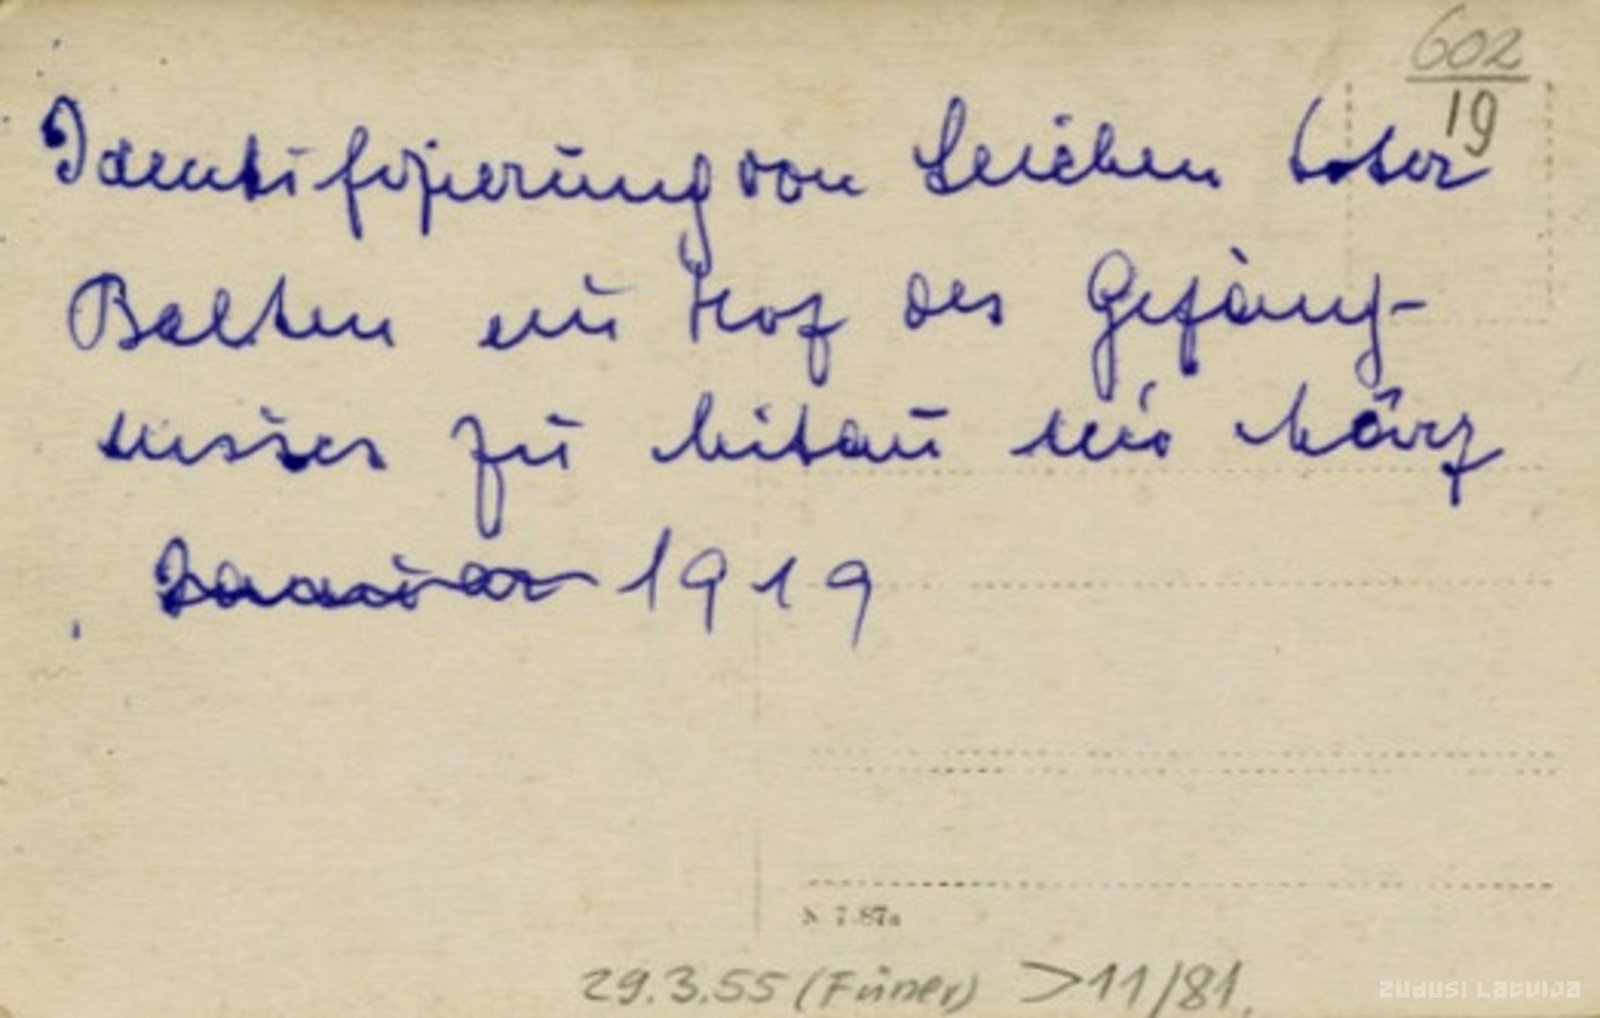 602
19
Identifizierung von Leichen toter
Balten im Hof des Gefäng-
nisses zu Mitau im März
Januar 1919
7.87a
29.3.55 (Füner) >11/81.
ZUDUSI LATVIJA